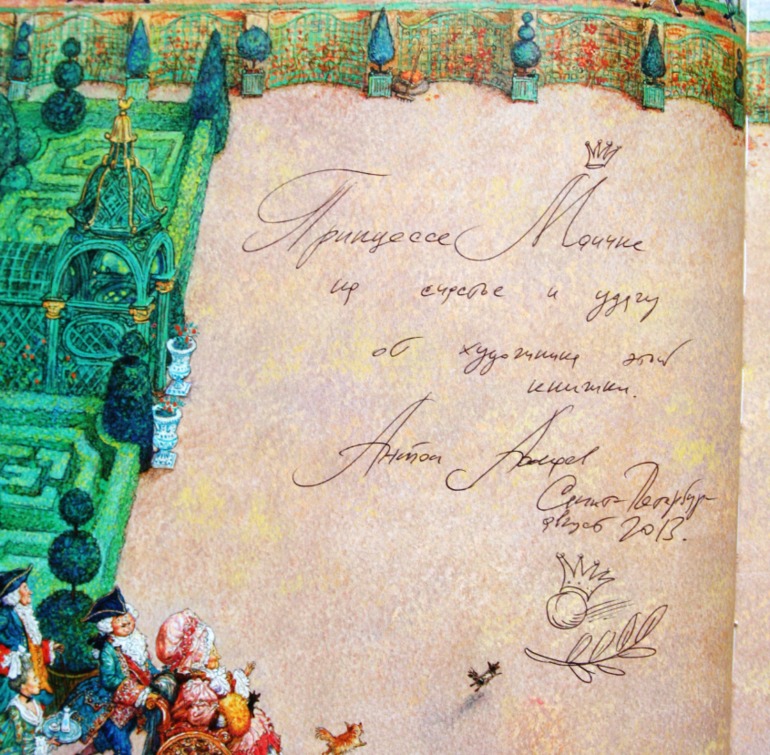 Принцессе Маичке
на счастье и удачу
от художника этой
книжки.
Антон Ломаев
Санкт-Петербург
август 2013.